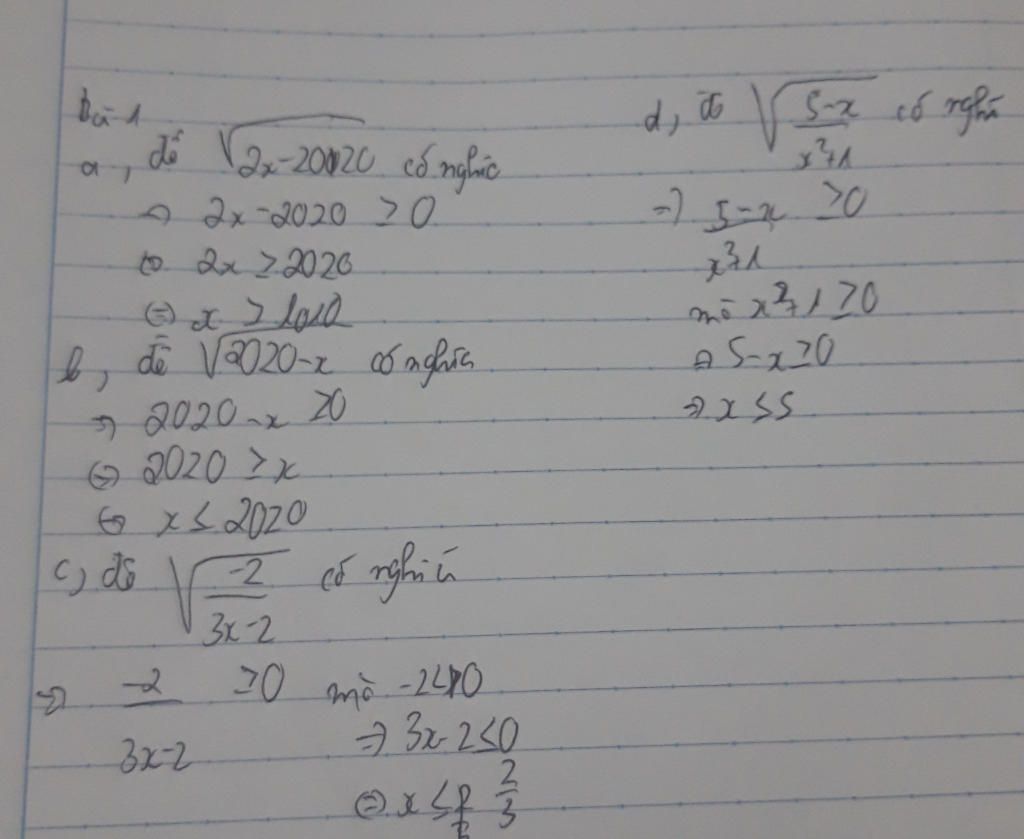 Bài 1
a, để √(2x-2020) có nghĩa
=> 2x-2020 ≥0
<=> 2x ≥2020
<=> x ≥1010
b, để √(2020-x) có nghĩa
=> 2020-x ≥0
<=> 2020 ≥x
<=> x≤2020
c, để √(-2/(3x-2)) có nghĩa
=> -2/(3x-2) ≥0 mà -2<0
=> 3x-2≤0
<=> x ≤ 2/3
d, để √((5-x)/(x²+1)) có nghĩ
=> (5-x)/(x²+1) ≥0
mà x²+1≥0
=> 5-x≥0
=> x≤5